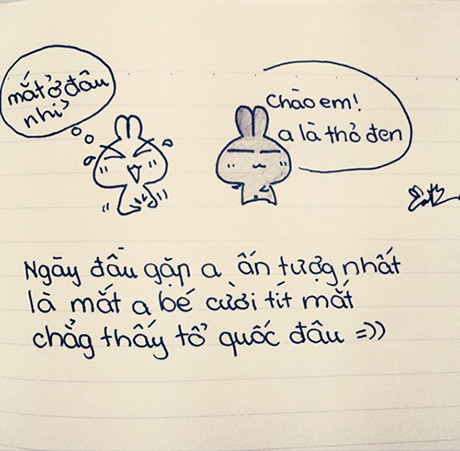 mắt ở đâu
nhỉ?
Chào em!
a là thỏ đen
Ngày đầu gặp a ấn tượng nhất
là mắt a bé cười tít mắt
chẳg thấy tổ quốc đâu =))